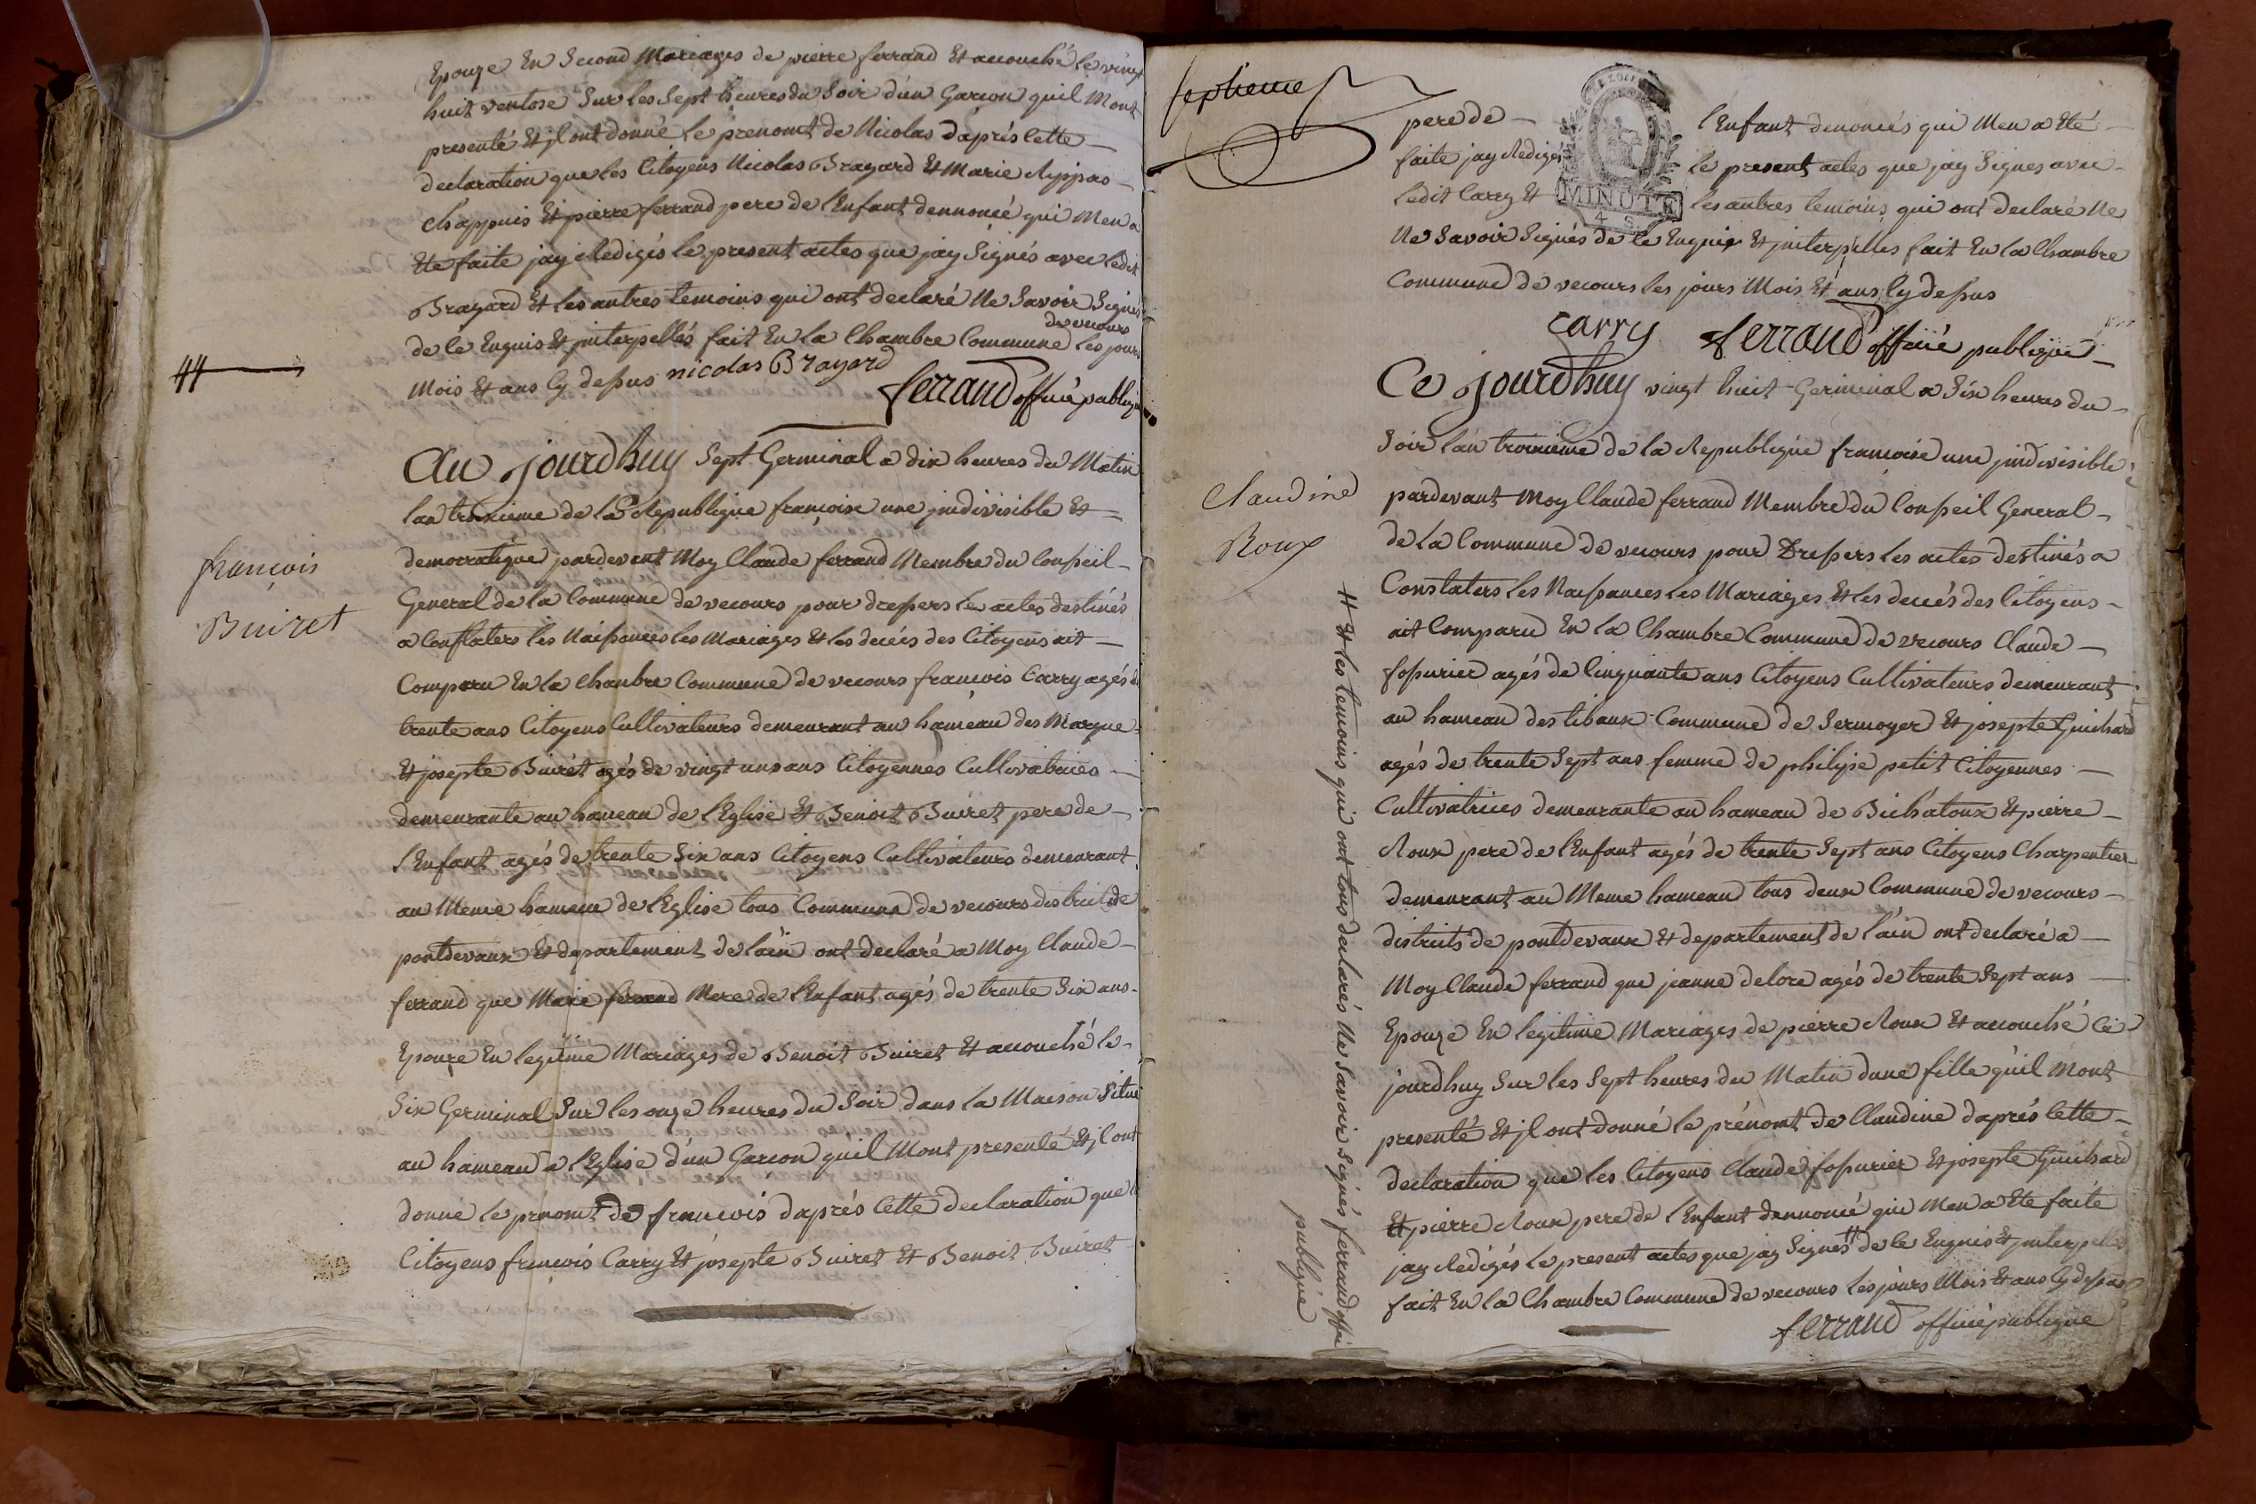 Epouze En Second Mariages de pierre ferrand Et accouché le vingt
huit ventose Sur les Sept heures du Soir d'un Garcon quil Mont
presenté Et jl ont donné le prenomt de Nicolas d'aprés cette
declaration que les Citoyens Nicolas Brayard Et Marie
chappuis Et pierre ferrand pere de l'Enfant dennoncé qui Men a
Ete faite jay Redigés le present actes que jay Signés avec ledit
Brayard Et les autres temoins qui ont declaré Ne Savoir Signés
de vecours
de le Enquis Et jnterpellés fait En la Chambre Commune les jours
Mois Et ans Cy depus nicolas Brayard
ferrand officié publique
Au jourdhuy Sept Germinal a dix heures du Matin
lan troisieme de la Republique francoise une jndivisible Et
democratique pardevent Moy Claude ferrand Membre du Conseil
General de la Commune de vecours pour dressers les actes destinés
a Constaters les Naissances les Mariages Et les decés des Citoyens ait
Comparu En la Chanbre Commune de vecours francois Carry agés de
trente ans Citoyens Cultivateurs demeurant au hameau des Marque
Et josepte Buiret agés de vingt un ans Citoyennes Cultivatrices
demeurante au hameau de l'Eglise Et Benoit Buiret pere de
l'Enfant agés de trente Six ans Citoyens Cultivateurs demeurant
au Meme hameau de l'Eglise tous Commune de vecours districts de
pontdevaux Et departement de l'ain ont declaré a Moy Claude
ferrand que Marie ferrand Mere de l'Enfant agés de trente Six ans
Epouze En legitime Mariages de Benoit Buiret Et accouché le
Six Germinal Sur les onze heures du Soir dans la Maison Situé
au hameau a l'Eglise d'un Garcon quil Mont presenté Et jl ont
donné le prenomt de francois daprés Cette declaration que
Citoyens francois Carry Et josepte Buiret Et Benoit Buiret
francois
Buiret
septieme
pere de l'Enfant denoncés qui Men a Eté
faite jay Rediges le present actes que jay Signes avec
ledit Carry Et les autres temoins qui ont declaré Ne
MINUTE
Ne Savoir Signés de le Enquis Et jnterpelles fait En la Chambre
Commune de vecours les jours Mois Et ans Cy depus
carry ferrand officié publique
Ce jourdhuy vingt huit Germinal a Six heures du
Soir lan troisieme de la Republique francoise une jndivisible
pardevant Moy Claude ferrand Membre du Conseil General
de la Commune de vecours pour Dressers les actes destinés a
Constaters les Naissances les Mariages Et les decés des Citoyens
ait Comparu En la Chambre Commune de vecours Claude
fossurier agés de Cinquante ans Citoyens Cultivateurs demeurant
au hameau des tibaux Commune de Sermoyer Et josepte Guichard
agés de trente Sept ans femme de philipe petit Citoyennes
Cultivatrices demeurante au hameau de Bichatoux Et pierre
Roux pere de l'Enfant agés de trente Sept ans Citoyens Charpentier
demeurant au Meme hameau tous deux Commune de vecours
districts de pontdevaux Et departement de l'ain ont declaré a
Moy Claude ferrand que jeanne delore agés de trente Sept ans
Epouze En legitime Mariages de pierre Roux Et accouché Ce
jourdhuy Sur les Sept heures du Matin dune fille quil Mont
presenté Et jl ont donné le prénomt de Claudine daprés Cette
declaration que les Citoyens Claude fossurier Et josepte Guichard
Et pierre Roux pere de l'Enfant dennoncé qui Men a Ete faite
jay Redigés le present actes que jay Signés # de le Enquis Et jnterpelés
fait En la Chambre Commune de vecours les jours Mois Et ans Cy depus
ferrand officié publique
Claudine
Roux
# Et les temoins qui ont tous declarés Ne Savoir Signés ferrand offié
publique